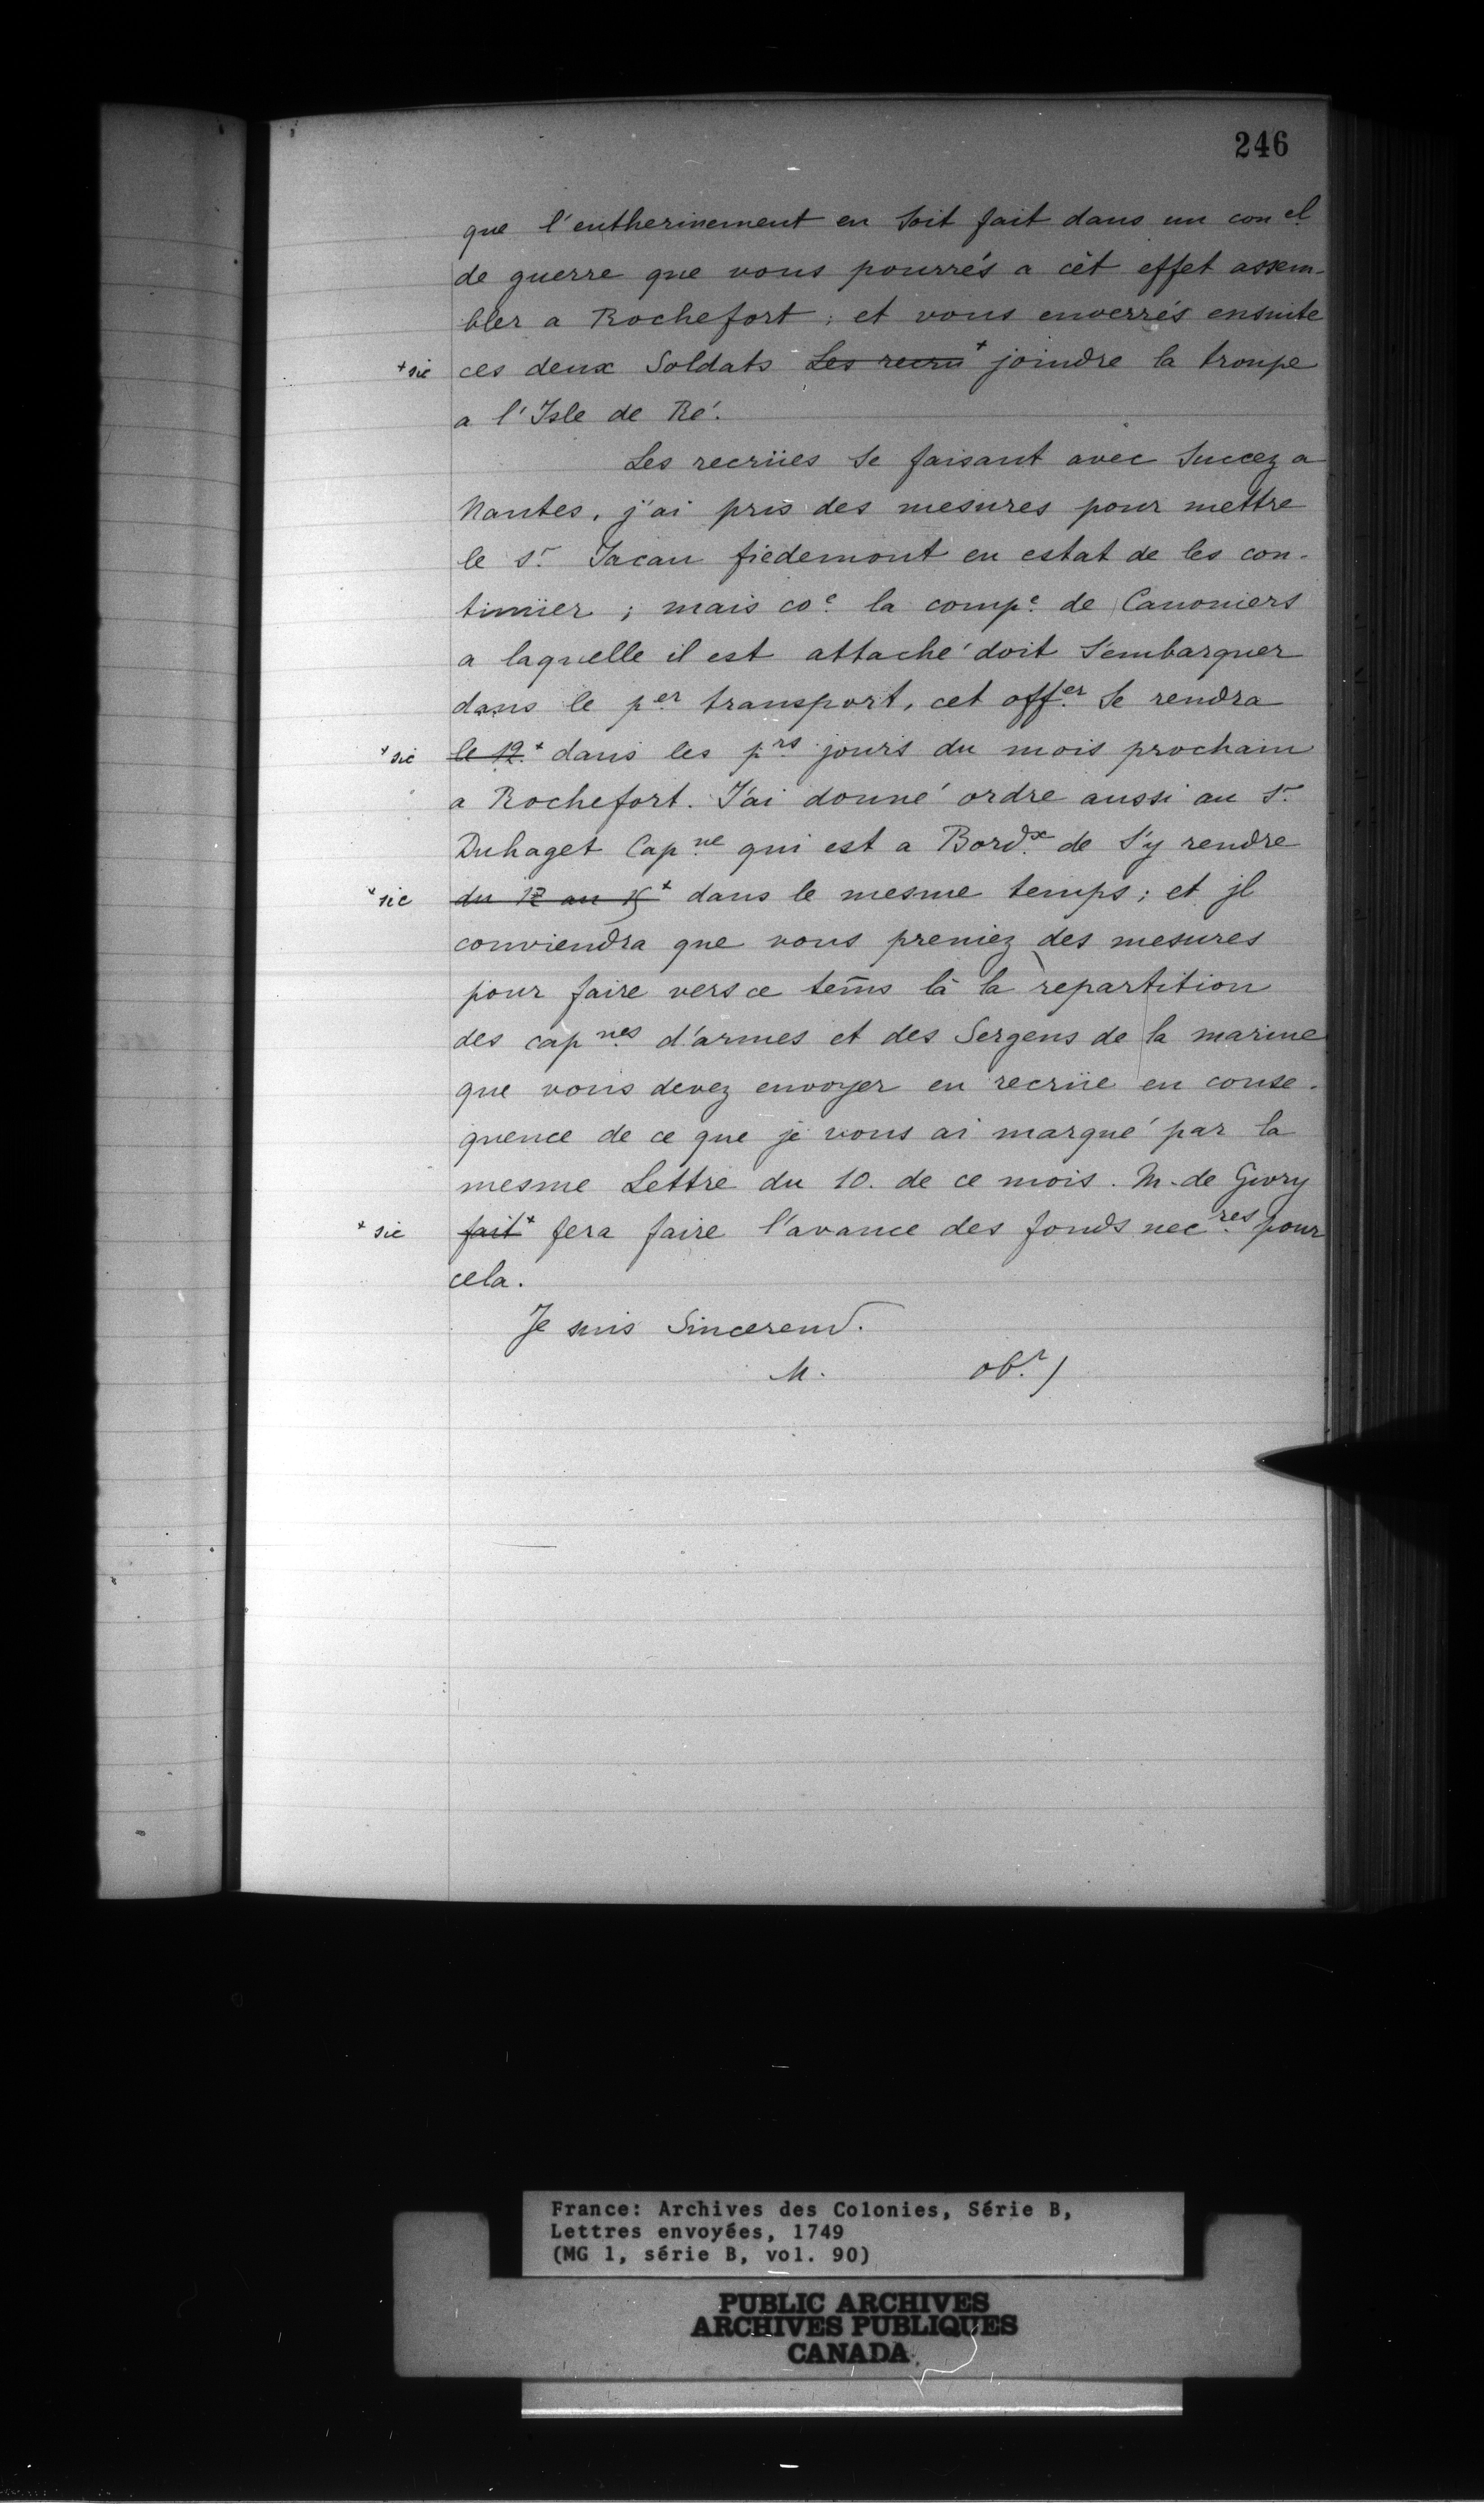 246
que l'entherinement en Soit fait dans un con el
de guerre que vous pourrés a cèt effet assem-
bler a Rochefort; et vous enverrés ensuite
+ sic ces deux Soldats ~~Les recru~~ + joindre la troupe
a l'Isle de Ré.
Les recrües Se faisant avec Succez a
Nantes, j'ai pris des mesures pour mettre
le Sr. Jacau fiedemont en estat de les con-
tinüer; mais coe. la compe. de Canoniers
a laquelle il est attaché doit S'embarquer
dans le per. transport, cet offer. Se rendra
+ sic ~~le 12.~~ + dans les prs. jours du mois prochain
a Rochefort. J'ai donné ordre aussi au Sr.
Duhaget Capne. qui est a Bordx. de S'y rendre
+ sic ~~du 12 au 15~~ + dans le mesme temps; et jl
conviendra que vous preniez des mesures
pour faire vers ce tem̄s là la repartition
des capnes. d'armes et des Sergens de la marine
que vous devez envoyer en recrüe en conse-
quence de ce que je vous ai marqué par la
mesme Lettre du 10. de ce mois. M. de Givry
+ sic ~~fait~~ + fera faire l'avance des fonds necres. pour
cela.
Je suis Sincerem.
M. obr. /
France: Archives des Colonies, Série B,
Lettres envoyées, 1749
(MG 1, série B, vol. 90)
PUBLIC ARCHIVES
ARCHIVES PUBLIQUES
CANADA